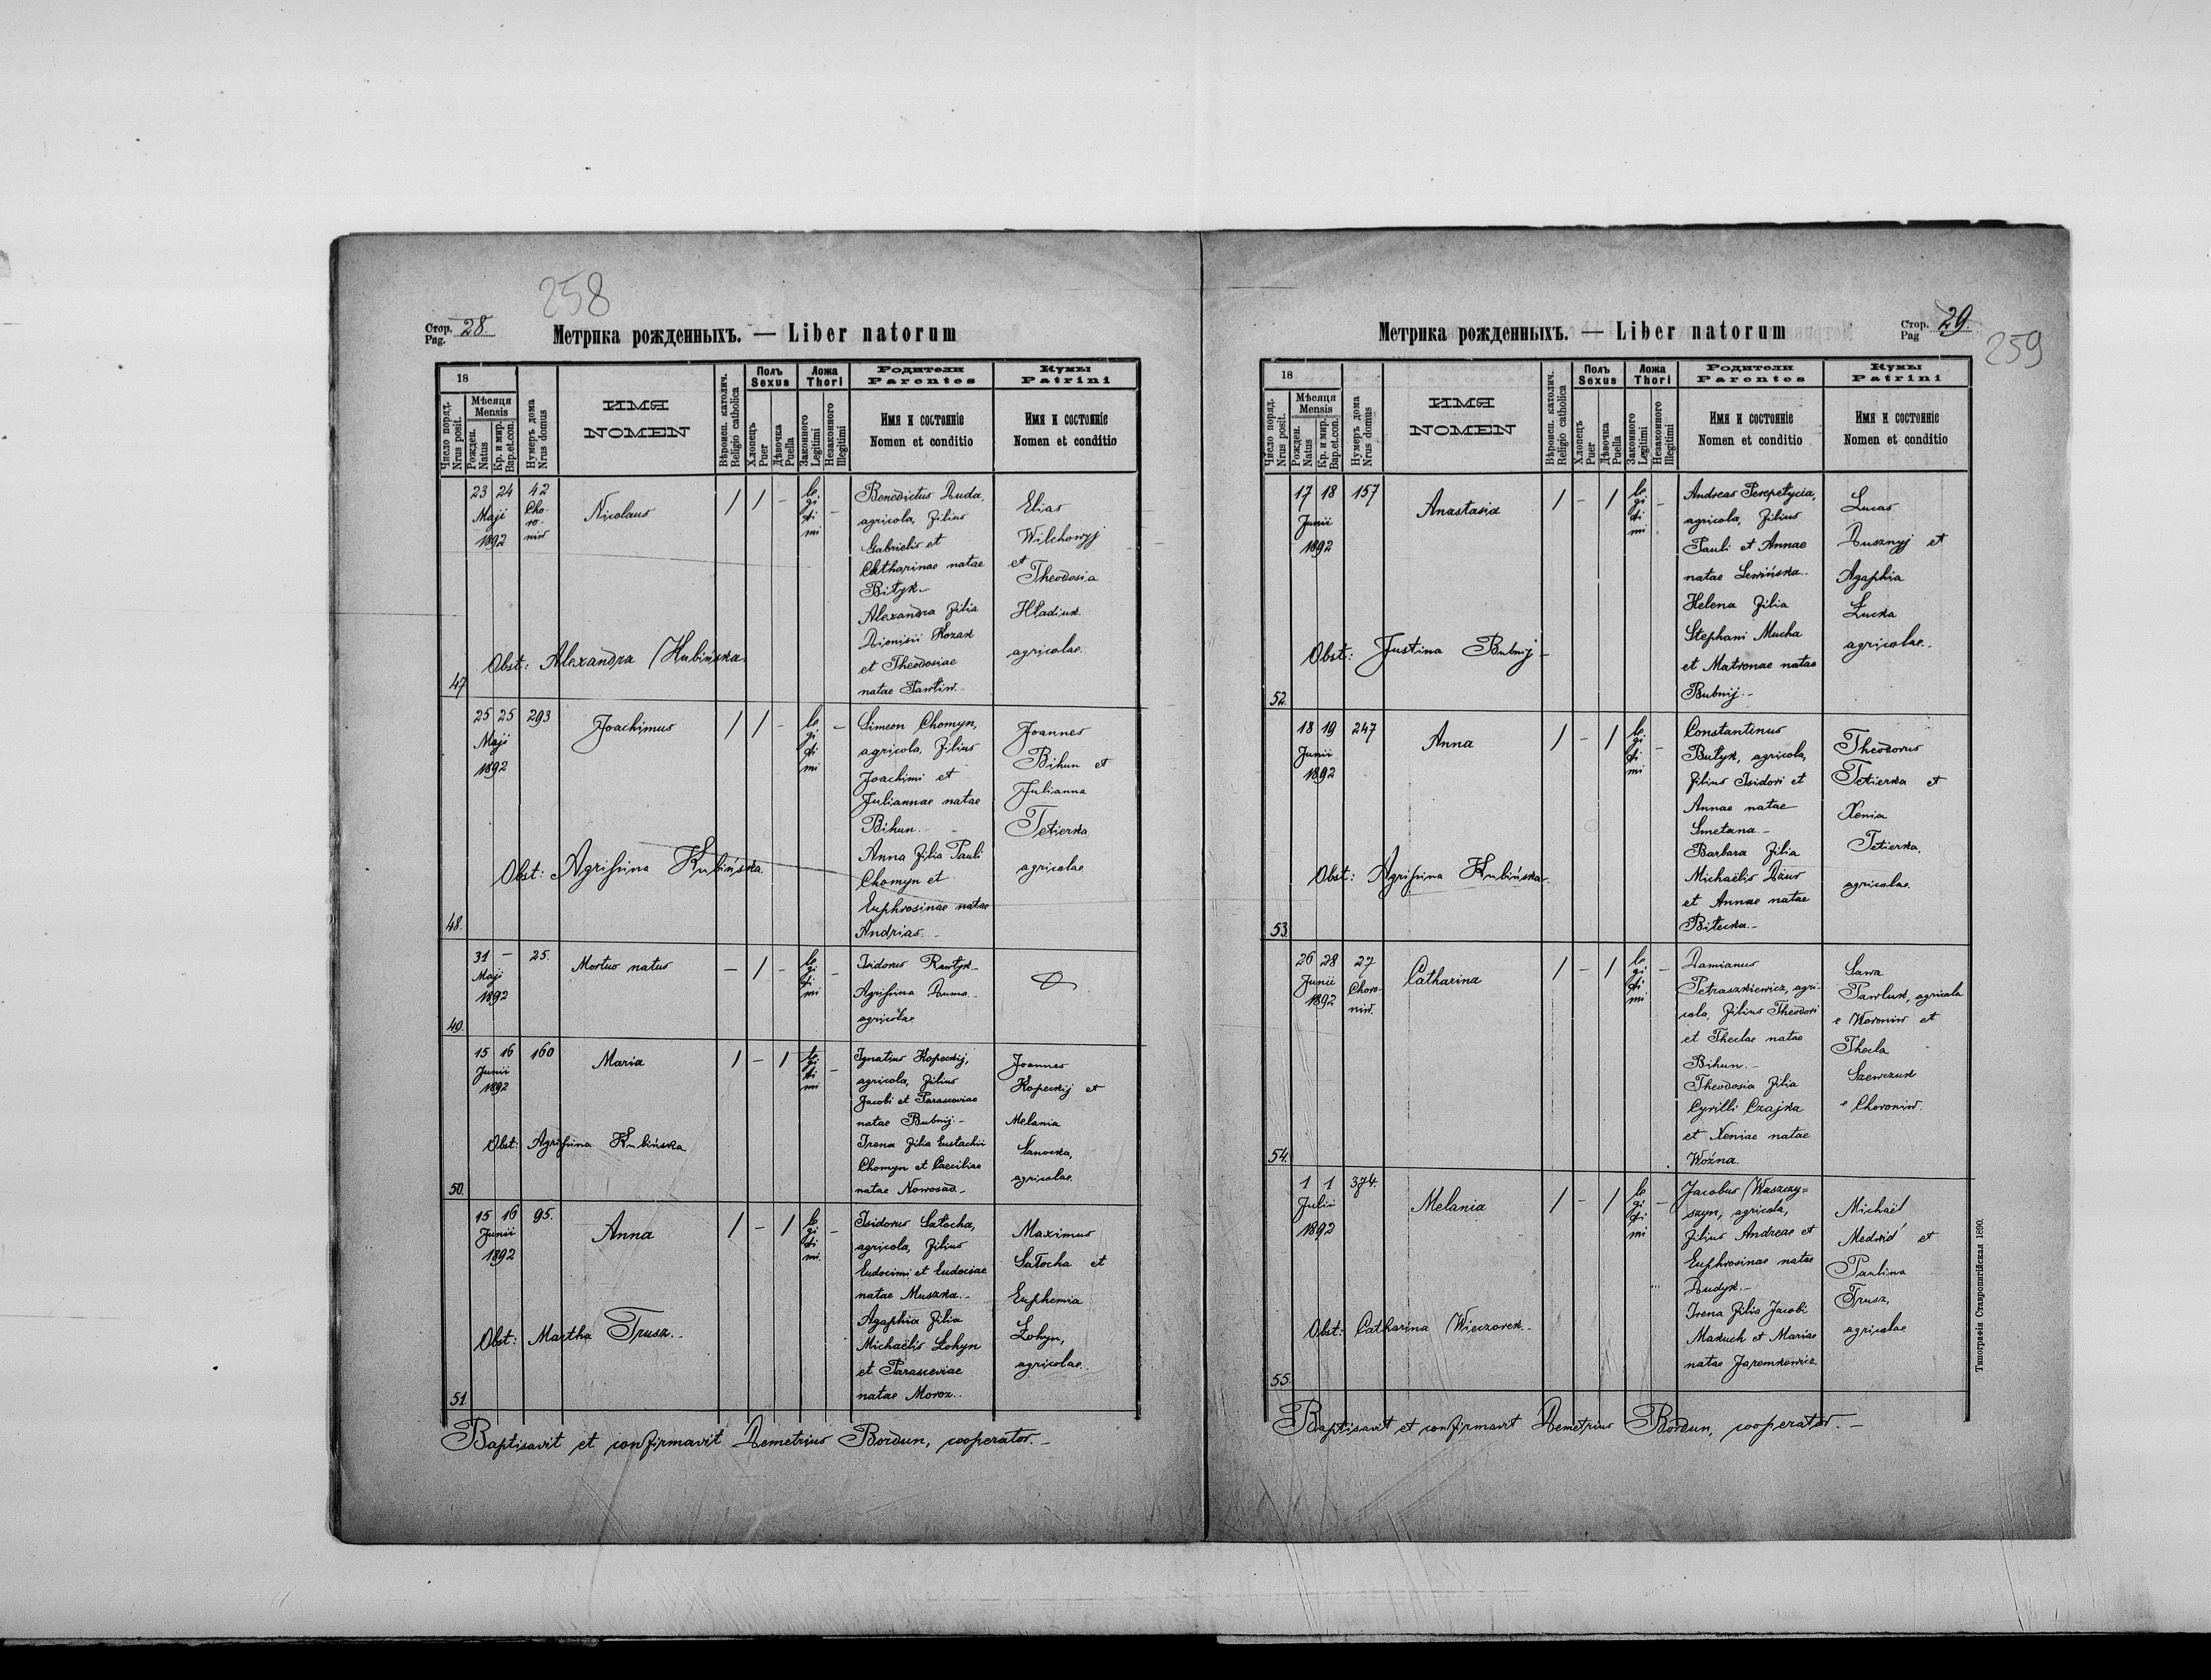 258
Стор. 28.
Pag.
Метрика рожденныхъ. — Liber natorum
18
Число поряд.
Nrus posit.
Мѣсяця
Mensis
Рожден.
Natus
Кр. и мир.
Bap.et.con.
Нумеръ дома
Nrus domus
ИМЯ
NOMEN
Вѣроисп. католич.
Religio catholica
Полъ
Sexus
Хлопецъ
Puer
Дѣвочка
Puella
Ложа
Thori
Законного
Legitimi
Незаконного
Illegitimi
Родители
Parentes
Имя и состояніе
Nomen et conditio
Кумы
Patrini
Имя и состояніе
Nomen et conditio
47
23 24
Maji
1892
42
Cho-
ro-
niw
Nicolaus
/ / -
le
gi
ti
mi
-
Benedictus Duda,
agricola, filius
Gabrielis et
Catharinae natae
Bityk.-
Alexandra filia
Dionisii Kozak
et Theodosiae
natae Pawliw.-
Elias
Wilchowyj
et
Theodosia
Hładiuk
agricolae.
Obst: Alexandra Hubińska.
48.
25 25
Maji
1892
293
Joachimus
/ / -
le
gi
ti
mi
-
Simeon Chomyn,
agricola, filius
Joachimi et
Juliannae natae
Bihun.-
Anna filia Pauli
Chomyn et
Euphrosinae natae
Andrias.-
Joannes
Bihun et
Julianna
Tetierka
agricolae
Obst: Agrippina Kubińska.
49.
31 -
Maji
1892
25.
Mortuo natus
- / -
le
gi
ti
mi
-
Isidorus Rawłyk.-
Agrippina Duma.-
agricolae
50.
15 16
Junii
1892
160
Maria
/ - /
le
gi
ti
mi
-
Ignatius Kopeckij,
agricola, filius
Jacobi et Parasceviae
natae Bubnij.-
Irena filia Eustachii
Chomyn et Caeciliae
natae Nowosad.-
Joannes
Kopeckij et
Melania
Sanocka,
agricolae.
Obst: Agrippina Kubińska
51.
15 16
Junii
1892
95.
Anna
/ - /
le
gi
ti
mi.
-
Isidorus Satocha,
agricola, filius
Eudocimi et Eudociae
natae Muszka.-
Agaphia filia
Michaëlis Łohyn
et Parasceviae
natae Moroz.-
Maximus
Satocha et
Euphemia
Łohyn,
agricolae.
Obst: Martha Trusz.-
Baptisavit et confirmavit Demetrius Bordun, cooperator.-
Стор. 29.
Pag
259
Метрика рожденныхъ. — Liber natorum
18
Число поряд.
Nrus posit.
Мѣсяця
Mensis
Рожден.
Natus
Кр. и мир.
Bap.et.con.
Нумеръ дома
Nrus domus
ИМЯ
NOMEN
Вѣроисп. католич.
Religio catholica
Полъ
Sexus
Хлопецъ
Puer
Дѣвочка
Puella
Ложа
Thori
Законного
Legitimi
Незаконного
Illegitimi
Родители
Parentes
Имя и состояніе
Nomen et conditio
Кумы
Patrini
Имя и состояніе
Nomen et conditio
52.
17 18
Junii
1892
157
Anastasia
/ - /
le
gi
ti
mi
-
Andreas Perepełycia,
agricola, filius
Pauli et Annae
natae Lewińska.-
Helena filia
Stephani Mucha
et Matronae natae
Bubnij.-
Lucas
Dusznyj et
Agaphia
Łucka
agricolae.-
Obst: Justina Bubnij-
53.
18 19
Junii
1892
247
Anna
/ - /
le
gi
ti
mi
-
Constantinus
Bułyk, agricola,
filius Isidori et
Annae natae
Smetana.-
Barbara filia
Michaëlis Dżur
et Annae natae
Biłecka.-
Theodorus
Tetierka et
Xenia
Tetierka,
agricolae.
Obst: Agrippina Kubińska.
54.
26 28
Junii
1892
27
Choro-
niw.
Catharina
/ - /
le
gi
ti
mi
-
Damianus
Petraszkiewicz, agri-
cola, filius Theodori
et Theclae natae
Bihun.-
Theodosia filia
Cyrilli Czajka
et Xeniae natae
Woźna.
Sawa
Pawluk, agricola
e Woroniw et
Thecla
Szewczuk
e Choroniw.
55.
1 1
Julii
1892
374.
Melania
/ - /
le
gi
ti
mi
-
Jacobus Waszczy=
szyn, agricola,
filius Andreae et
Euphrosinae natae
Dudyk.-
Irena filia Jacobi
Makuch et Mariae
natae Jaremkowicz
Michaël
Medwid' et
Paulina
Trusz,
agricolae
Obst: Catharina Wieczorek.-
Baptisavit et confirmavit Demetrius Bordun, cooperator.-
Типографія Ставропигійская 1890.